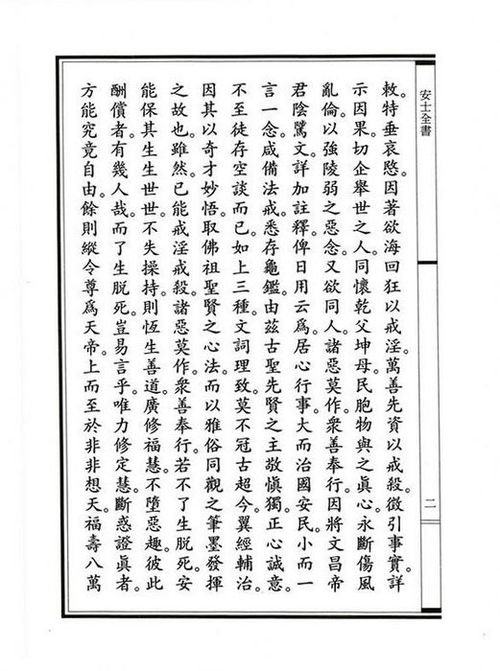 安士全書
二
敕。特垂哀愍。因著欲海回狂以戒淫。萬善先資以戒殺。徵引事實。詳
示因果。切企舉世之人。同懷乾父坤母。民胞物與之眞心。永斷傷風
亂倫。以強陵弱之惡念。又欲同人。諸惡莫作。衆善奉行。因將文昌帝
君陰騭文。詳加註釋。俾日用云爲。居心行事。大而治國安民。小而一
言一念。咸備法戒。悉存龜鑑。由茲古聖先賢之主敬愼獨。正心誠意。
不至徒存空談而已。如上三種。文詞理致。莫不冠古超今。翼經輔治。
因其以奇才妙悟。取佛祖聖賢之心法。而以雅俗同觀之筆墨發揮
之故也。雖然。已能戒淫戒殺。諸惡莫作。衆善奉行。若不了生脱死。安
能保其生生世世。不失操持。則恆生善道。廣修福慧。不墮惡趣。彼此
酬償者。有幾人哉。而了生脱死。豈易言乎。唯力修定慧。斷惑證眞者。
方能究竟自由。餘則縱令尊爲天帝。上而至於非非想天。福壽八萬